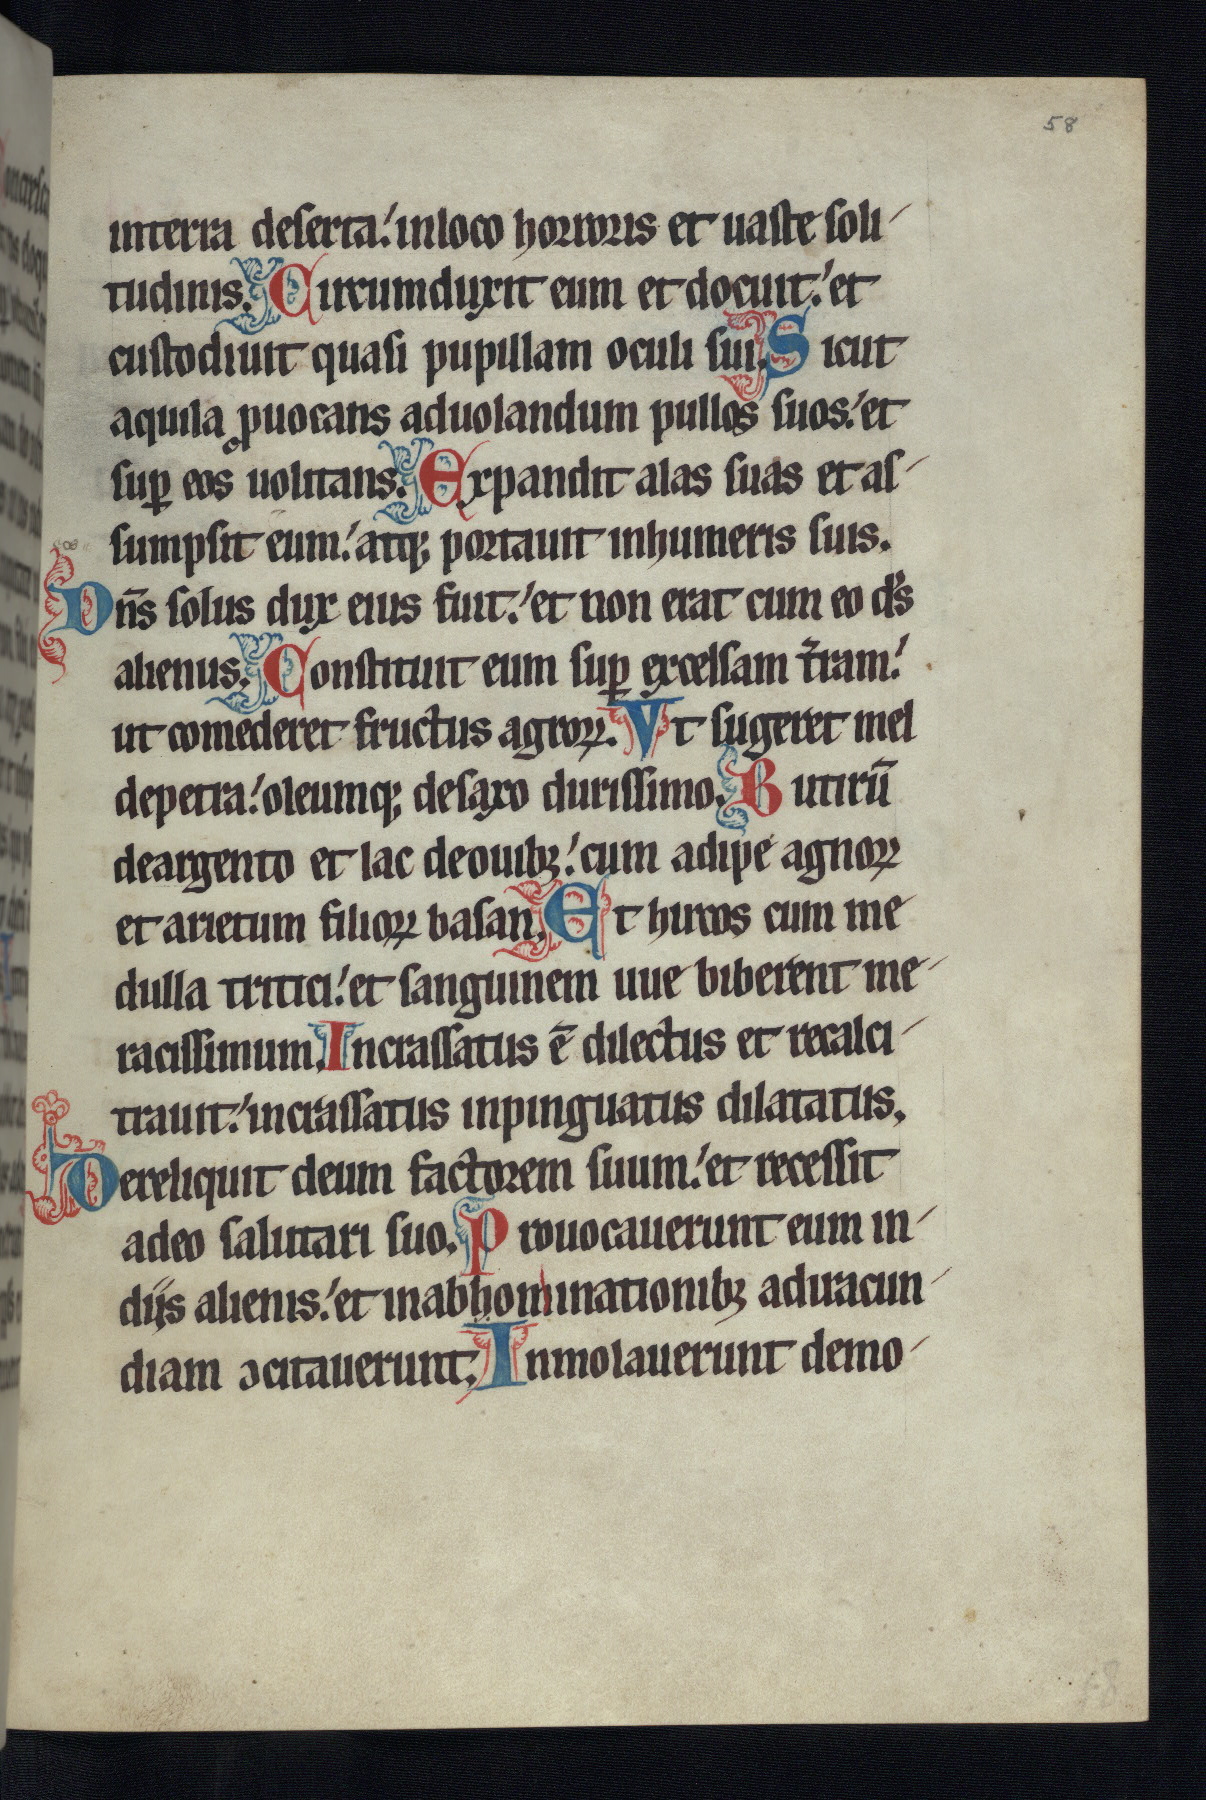 58
interra deserta. inloco horroris et uaste soli-
tudinis. Circumduxit eum et docuit. et
custodiuit quasi pupillam oculi sui. Sicut
aquila ꝓuocans aduolandum pullos suos. et
suꝑ eos uolitans. Expandit alas suas et as-
sumpsit eum. atqꝫ portauit inhumeris suis.
Dn̄s solus dux eius fuit. et non erat cum eo d's
alienus. Constituit eum suꝑ excelsam t̄ram.
ut comederet fructus agroꝝ. Vt sugeret mel
depetra. oleumqꝫ desaxo durissimo. Butirū
deargento et lac deouibꝫ. cum adipe agnoꝝ
et arietum filioꝝ basan. Et hircos cum me
dulla tritici. et sanguinem uue biberent me-
racissimum. Incrassatus ē dilectus et recalci-
trauit. incrassatus inpinguatus dilatatus.
Dereliquit deum factorem suum. et recessit
adeo salutari suo. Prouocauerunt eum in-
diis alienis. et inabhominationibꝫ adiracun-
diam ↄcitauerunt. Inmolauerunt demo-